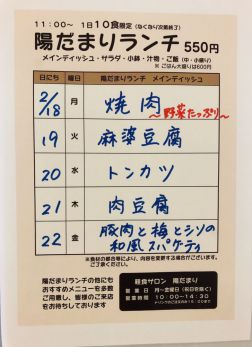 11:00～ 1日10食限定(なくなり次第終了)
陽だまりランチ 550円
メインディッシュ・サラダ・小鉢・汁物・ご飯(中・小盛り)
※ごはん大盛りは600円
日にち 曜日 陽だまりランチ メインディッシュ
2/18 月 焼肉 ～野菜たっぷり～
19 火 麻婆豆腐
20 水 トンカツ
21 木 肉豆腐
22 金 豚肉と梅とシソの
和風スパゲティ
※食材の都合等により、内容を変更する場合がございます。
ご了承ください。
陽だまりランチの他にも
おすすめメニューを多数
ご用意し、皆様のご来店
をお待ちしております
軽食サロン 陽だまり
営業日 月～金曜日(祝日を除く)
営業時間 10:00～14:30